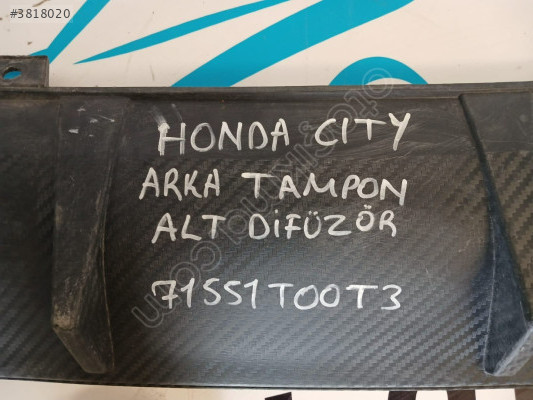 #3818020
HONDA CITY
ARKA TAMPON
ALT DİFÜZÖR
71551T00T3